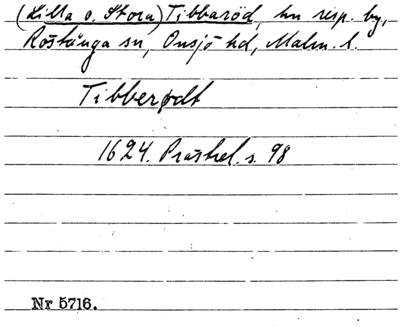 (Lilla o. Stora) Tibbaröd, hn resp. by,
Röstånga sn, Onsjö hd, Malm. l.
Tibberødt
1624. Prästrel. s. 98
Nr 5716.